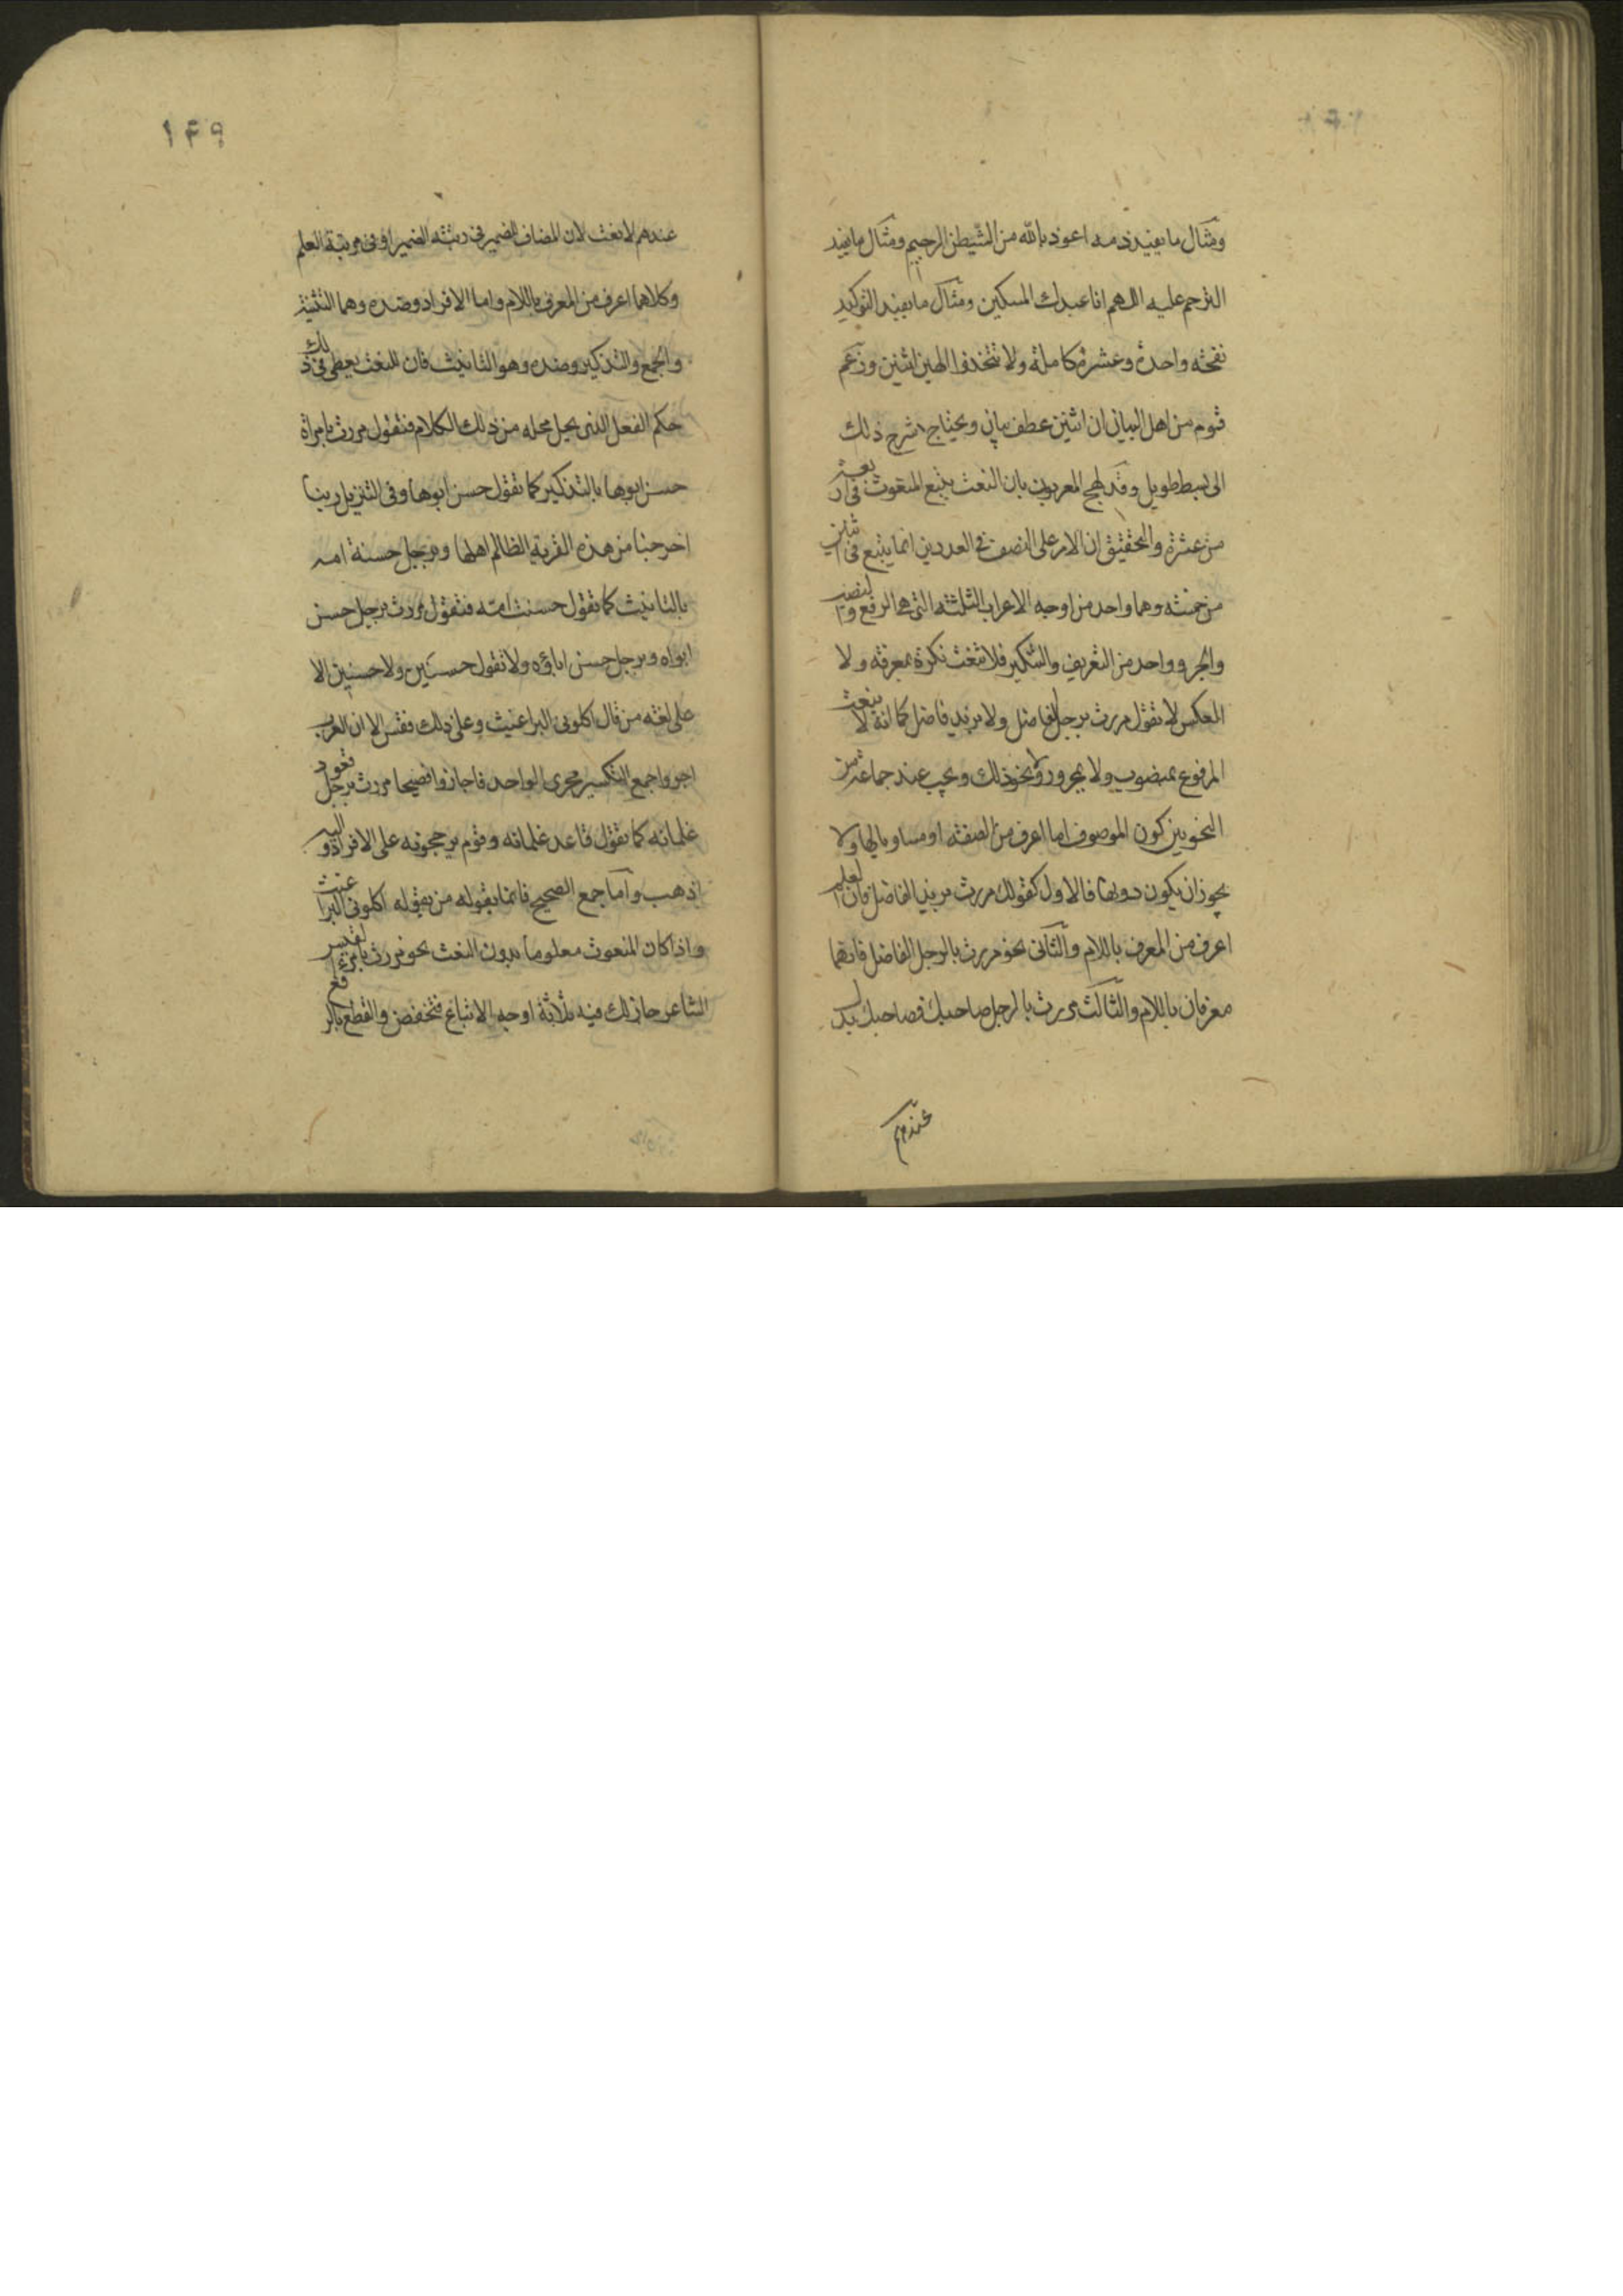 ومثال ما يفيد ذمه اعوذ بالله من الشيطن الرجيم ومثال ما يفيد
الترحم عليه اللهم انا عبدك المسكين ومثال ما يفيد التوكيد
نفخة واحدة وعشرة كاملة ولا تتخذوا الهين اثنين وزعم
قوم من اهل البيان ان اثنين عطف بيان ويحتاج شرح ذلك
الى بسط طويل وقد لهج المعربون بان النعت يتبع المنعوت في اربعة
من عشرة والتحقيق ان الامر على النصف في العددين انما يتبع في اثنين
من خمسة وهما واحد من اوجه الاعراب الثلثة التي هي الرفع والنصب
والجر وواحد من التعريف والتنكير فلا تنعت نكرة بمعرفة ولا
العكس لا تقول مررت برجل الفاضل ولا بزيد فاضل كما انه لا ينعت
المرفوع بمنصوب ولا بمجرور ونحو ذلك ويجب عند جماعة من
النحويين كون الموصوف اما اعرف من الصفة او مساويا لها ولا
يجوز ان يكون دونها فالاول كقولك مررت بزيد الفاضل فان العلم
اعرف من المعرف باللام والثاني نحو مررت بالرجل الفاضل فانهما
معرفان باللام والثالث مررت بالرجل صاحبك فصاحبك بدل
عندهم
١٤٩
عندهم لا نعت لان المضاف للضمير في رتبة الضمير او في مرتبة العلم
وكلاهما اعرف من المعرف باللام واما الافراد وضده وهما التثنية
والجمع والتذكير وضده وهو التانيث فان النعت يعطى في ذلك
حكم الفعل الذي يحل محله من ذلك الكلام فتقول مررت بامراة
حسن ابوها بالتذكير كما تقول حسن ابوها وفى التنزيل ربنا
اخرجنا من هذه القرية الظالم اهلها وبرجل حسنة امه
بالتانيث كما تقول حسنت امه فتقول مررت برجل حسن
ابواه وبرجل حسن اباؤه ولا تقول حسنين ولا حسنين الا
على لغة من قال اكلوني البراغيث وعلى ذلك فقس الا ان العرب
اجروا جمع التكسير مجرى الواحد فاجازوا فصيحا مررت برجل قعود
غلمانه كما تقول قاعد غلمانه وقوم يرجحونه على الافراد واليه
اذهب واما جمع الصحيح فانما يقوله من يقوله اكلوني البراغيث
واذا كان المنعوت معلوما بدون النعت نحو مررت بامرء القيس
الشاعر جاز لك فيه ثلاثة اوجه الاتباع فتخفض والقطع بالرفع